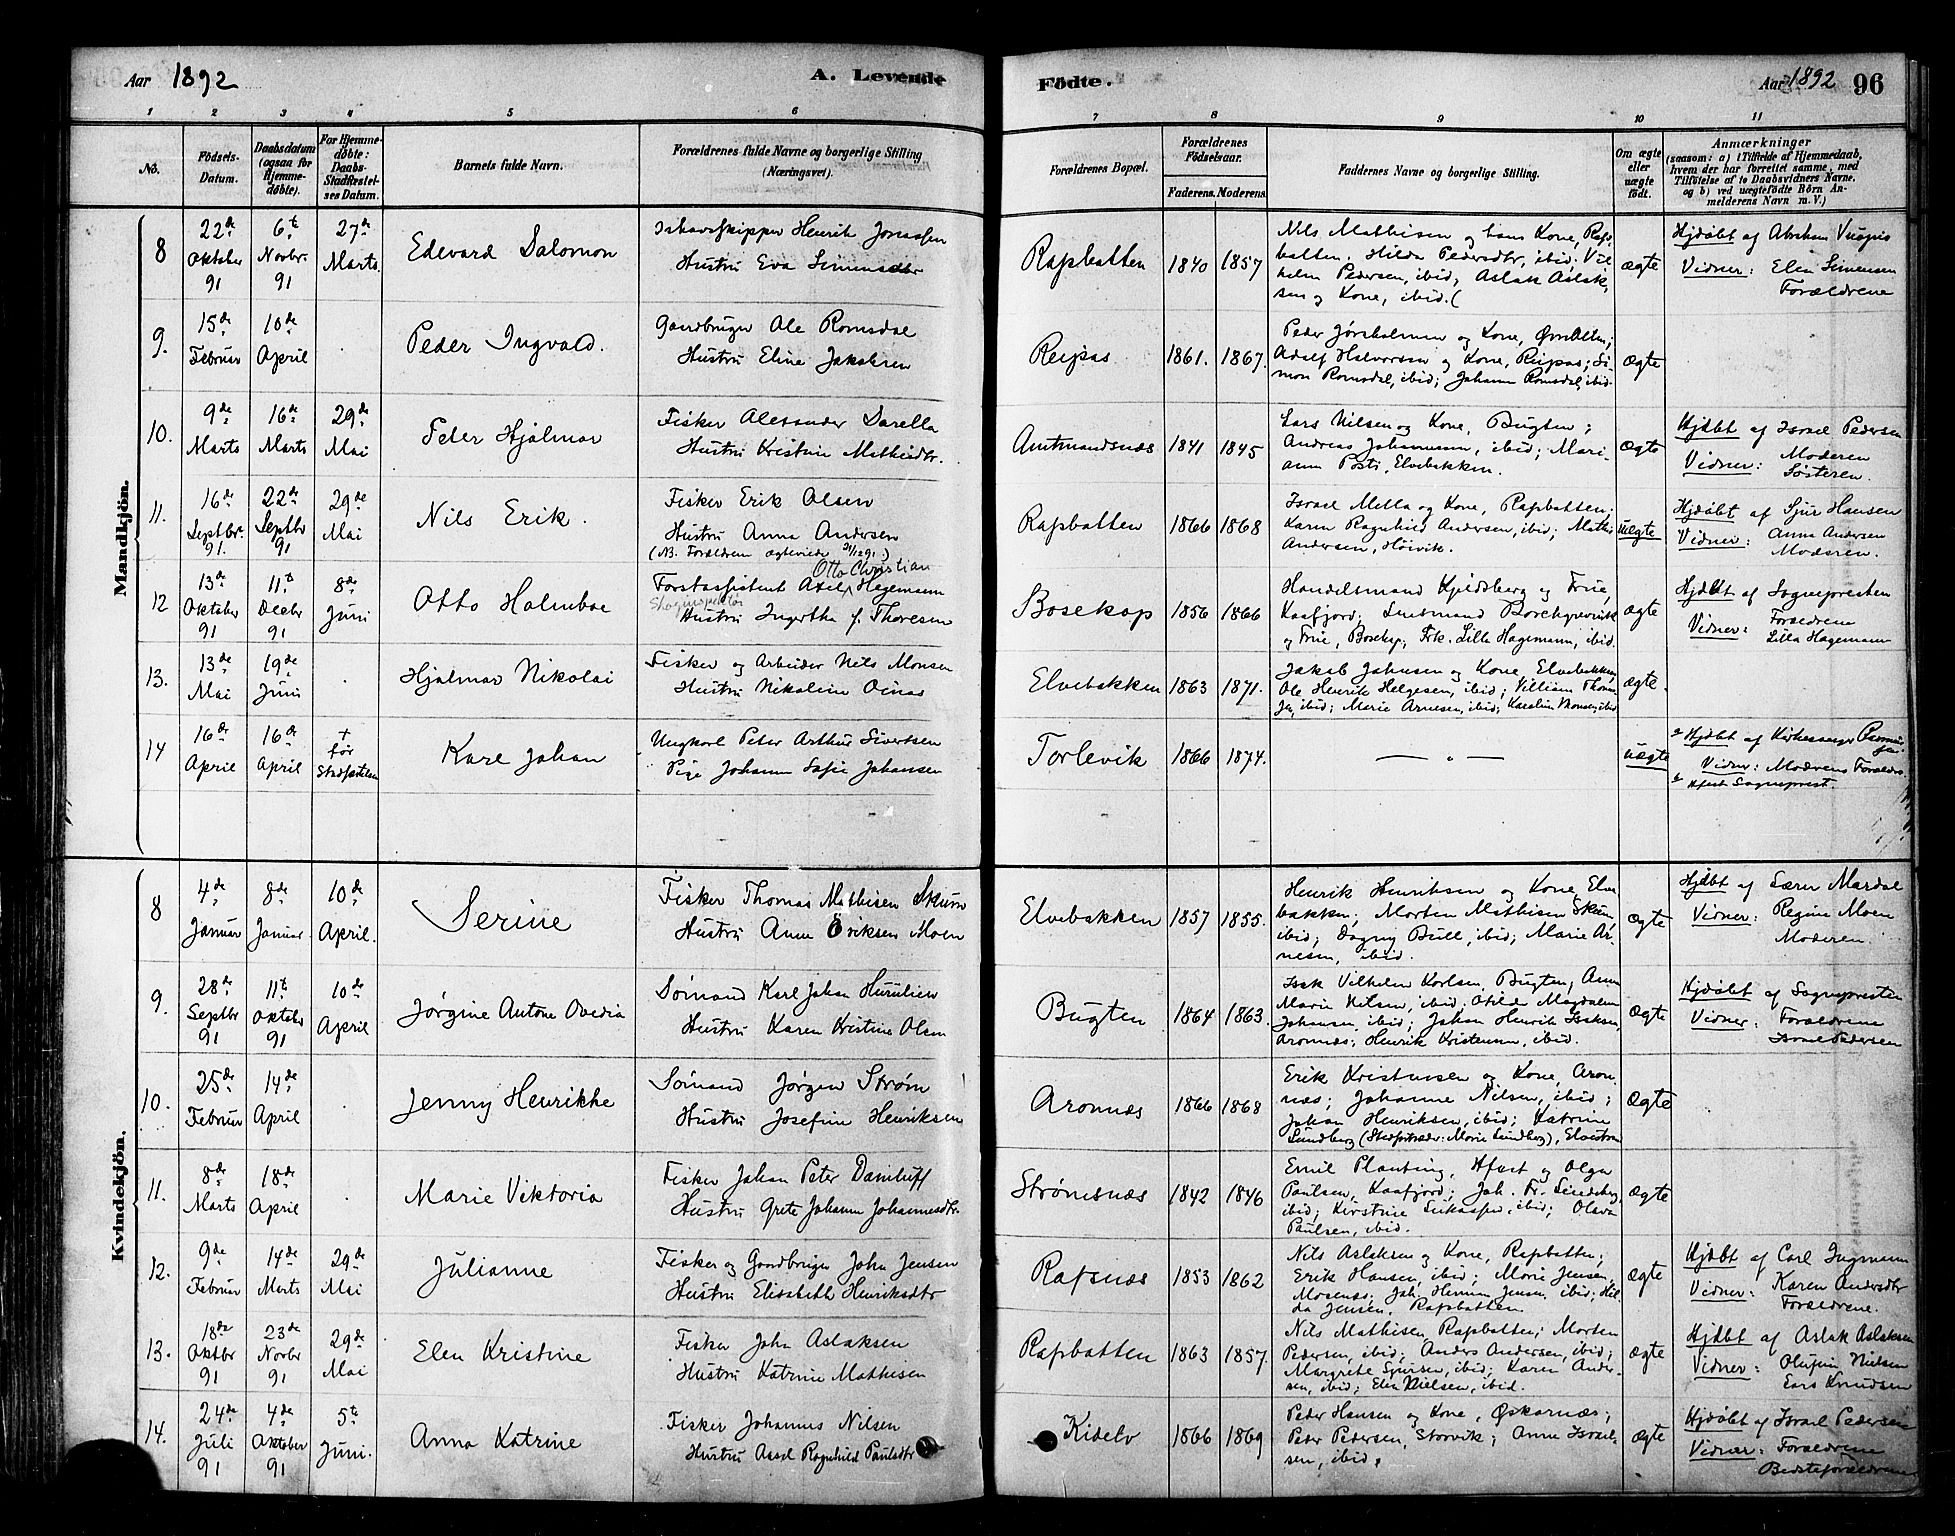 Aar 1892
A. Levende
Fødte.
Aar 1892 96
1 2 3 4 5 6 7 8 9 10 11
No.
Fødsels-
Datum.
Daabsdatum
(ogsaa for
Hjemme-
døbte).
For Hjemme-
døbte:
Daabs-
Stadfæstel-
ses Datum.
Barnets fulde Navn.
Forældrenes fulde Navne og borgerlige Stilling
(Næringsvei).
Forældrenes Bopæl.
Forældrenes
Fødselsaar.
Faderens. Moderens.
Faddernes Navne og borgerlige Stilling.
Om ægte
eller
uægte
født.
Anmærkninger
(saasom: a) i Tilfælde af Hjemmedaab,
hvem der har forrettet samme, med
Tilføielse af to Daabsvidners Navne,
og b) ved uægtefødte Børn An-
melderens Navn m. V.)
Mandkjön.
8
22de Oktober 91
6te Novbr. 91
27de Marts
Edevard Salomon
Ishavsskipper Henrik Jonassen
Hustru Eva Simensdtr
Rapbatten
1840 1857
Nils Mathisen og hans Kone, Raps-
batten; Hilda Pedersdtr, ibid; Vil-
helm Pedersen, ibid; Aslak Aslak-
sen og Kone, ibid.
ægte
Hjdøbt af Abraham
Vidner: Elen Simensen
Forældrene
9.
15de Februar
10de April
Peder Ingvald.
Gaardbruger Ole Romsdal
Hustru Eline Jakobsen
Reipas
1861. 1867.
Peder Jørgholmen og Kone, ØvreAlten;
Adolf Halvorsen og Kone, Reipas; Si-
mon Romsdal, ibid; Johanna Romsdal, ibid.
ægte
10.
9de Marts
16de Marts
29de Mai
Peter Hjalmar
Fisker Alexander Sarella
Hustru Kristine Mathisdtr.
Amtmandsnæs
1841 1845
Lars Nilsen og Kone, Bugten;
Andreas Johannesen, ibid; Mari-
anna Posti, Elvebakken.
ægte
Hjdøbt af Israel Pedersen
Vidner: Moderen
Søsteren.
11.
16de Septbr. 91.
22de Septbr 91
29de Mai
Nils Erik.
Fisker Erik Olsen
Hustru Anna Andersen
(NB. Forældrene ægteviede 31/12 91.)
Rapbatten
1866 1868
Israel Mella og Kone, Rapbatten;
Karen Ragnhild Andersen, ibid; Mathis
Andersen, Høivik.
uægte
Hjdøbt af Sjur Hansen
Vidner: Anna Andersen
Moderen.
12
13de Oktober 91
11te Decbr 91
8de Juni
Otto Holmboe
Otto Christian
Forstassistent Axel Hagemann
Skoginspektør
Hustru Ingertha f. Thoresen
Bosekop
1856 1866
Handelsmand Kjeldsberg og Frue,
Kaafjord; Lensmand Borchgrevink
og Frue, Bosekop; Frk. Lilla Hagemann, ibid.
ægte
Hjdøbt af Sognepresten
Vidner: Forældrene
Lilla Hagemann
13.
13de Mai
19de Juni
Hjalmar Nikolai
Fisker og Arbeider Nils Monsen
Hustru Nikoline Oinas
Elvebakken
1863 1871.
Jakob Johnsen og Kone, Elvebakken;
Ole Henrik Helgesen, ibid; Villiam Thom-
ibid; Marie Arnesen, ibid; Karoline Monsen, ibid
ægte.
14
16de April
16de April
+ før Stadfæstelsen
Karl Johan
Ungkarl Peter Arthur Sivertsen
Pige Johanna Sofie Johansen
Torlevik
1866 1874.
— „ —
uægte
Hjdøbt af Kirkesanger
Vidner: Moderens Forældre.
Sogneprest.
Kvindekjön.
8
4de Januar
8de Januar
10de April.
Serine
Fisker Thomas Mathisen Skum
Hustru Anna Eriksen Moen
Elvebakken
1857 1855.
Henrik Henriksen og Kone Elve-
bakken; Morten Mathisen Skum,
ibid; Dagny Bull, ibid; Marie Ar-
nesen, ibid.
ægte
Hjdøbt af Søren Mardal
Vidner: Regine Moen
Moderen.
9.
28de Septbr 91
11te Oktober 91
10de April
Jørgine Antone Ovedia
Sømand Karl Johan
Hustru Karen Kristine Olsen
Bugten
1864 1863.
Isak Vilhelm Karlsen, Bugten; Anna
Marie Nilsen, ibid; Otilde Magdalena
Johansen, ibid; Johan Henrik Isaksen,
Aronnæs; Henrik Kristensen, ibid.
ægte
Hjdøbt af Sognepresten
Vidner: Forældrene
Israel Pedersen
10.
25de Februar
14de April
Jenny Henrikke
Sømand Jørgen Strøm
Hustru Josefine Henriksen
Aronnæs
1866 1868
Erik Kristensen og Kone, Aron-
næs; Johanne Nilsen, ibid;
Johan Henriksen, ibid; Katrine
Lundberg (Stedfortræder: Marie Lundberg), Elvestrand
ægte
11.
8de Marts
18de April
Marie Viktoria
Fisker Johan Peter Daniloff
Hustru Grete Johanna Johannesdtr.
Strømsnæs
1842 1846
Emil Planting, Hfest og Olga
Paulsen, Kaafjord; Joh. Fr. Lindberg,
ibid; Kirstine ibid; Olava
Paulsen, ibid.
ægte
12.
9de Februar
14de Marts
29de Mai
Julianne
Fisker og Gaardbruger John Jensen
Hustru Elisabeth Henriksdtr
Rafsnæs
1853 1862
Nils Aslaksen og Kone, Rapbatten;
Erik Hansen, ibid; Marie Jensen,
Mosenæs; Joh. Jensen, ibid; Hil-
da Jensen, Rapbatten.
ægte
Hjdøbt af Carl Ingmann
Vidner: Karen Andersdtr
Forældrene.
13.
18de Oktbr 91
23de Novbr 91
29de Mai
Elen Kristine
Fisker John Aslaksen
Hustru Katrine Mathisen
Rapbatten
1863 1857.
Nils Mathisen, Rapbatten; Morten
Pedersen, ibid; Anders Andersen, ibid;
Margrete Sjursen, ibid; Karen Ander-
sen, ibid; Elen Nielsen, ibid.
ægte
Hjdøbt af Aslak Aslaksen
Vidner: Olufine Nielsen
Lars Knudsen
14.
24de Juli 91
4de Oktober 91
5te Juni.
Anna Katrine
Fisker Johannes Nilsen
Hustru Assel Ragnhild Paulsdtr
Kidelv
1866 1869
Peder Hansen og Kone, Øskarnæs;
Peter Pedersen, Storvik; Anne Israel-
sen, ibid.
ægte
Hjdøbt af Israel Pedersen
Vidner: Forældrene
Bedsteforældrene